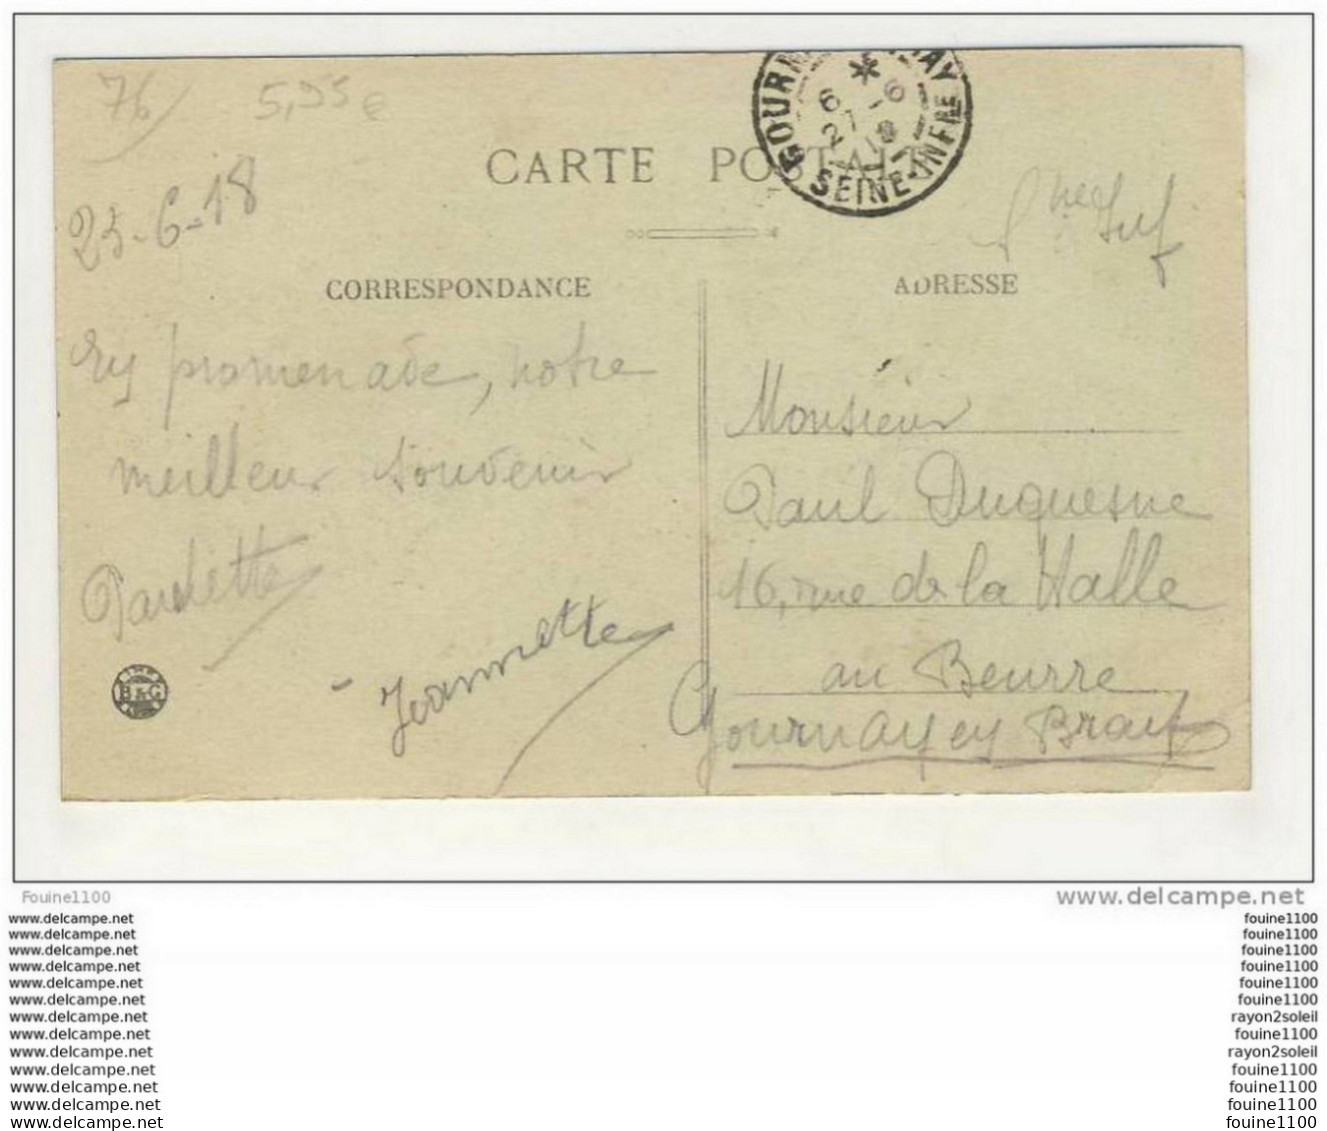 76 5,95 €
GOURN AY
6 - 6
27 18
SEINE-INFRE
CARTE POSTALE
25-6-18
CORRESPONDANCE
ADRESSE
En promenade, notre
meilleur souvenir
Paulette
Jeannette
B & G
Monsieur
Paul Duquesne
16, rue de la Halle
au Beurre
Gournay en Bray
Fouine1100
www.delcampe.net
www.delcampe.net
www.delcampe.net
www.delcampe.net
www.delcampe.net
www.delcampe.net
www.delcampe.net
www.delcampe.net
www.delcampe.net
www.delcampe.net
www.delcampe.net
www.delcampe.net
www.delcampe.net
www.delcampe.net
fouine1100
fouine1100
fouine1100
fouine1100
fouine1100
fouine1100
rayon2soleil
fouine1100
rayon2soleil
fouine1100
fouine1100
fouine1100
fouine1100